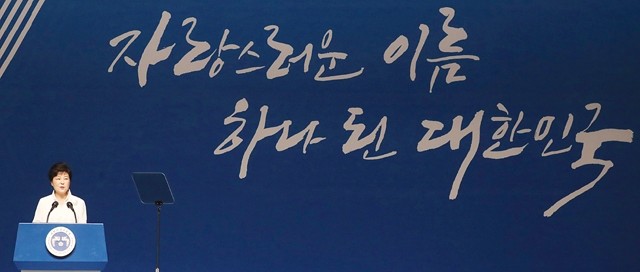 자랑스러운 이름
하나 된 대한민국